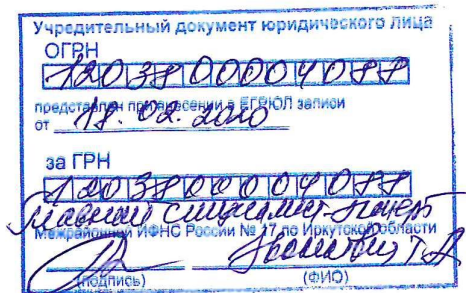 Учредительный документ юридического лица
ОГРН
1203800004088
представлен при внесении в ЕГРЮЛ записи
от 18.02.2020
за ГРН
1203800004088
Главный специалист-эксперт
Межрайонной ИФНС России № 17 по Иркутской области
(подпись) (ФИО)